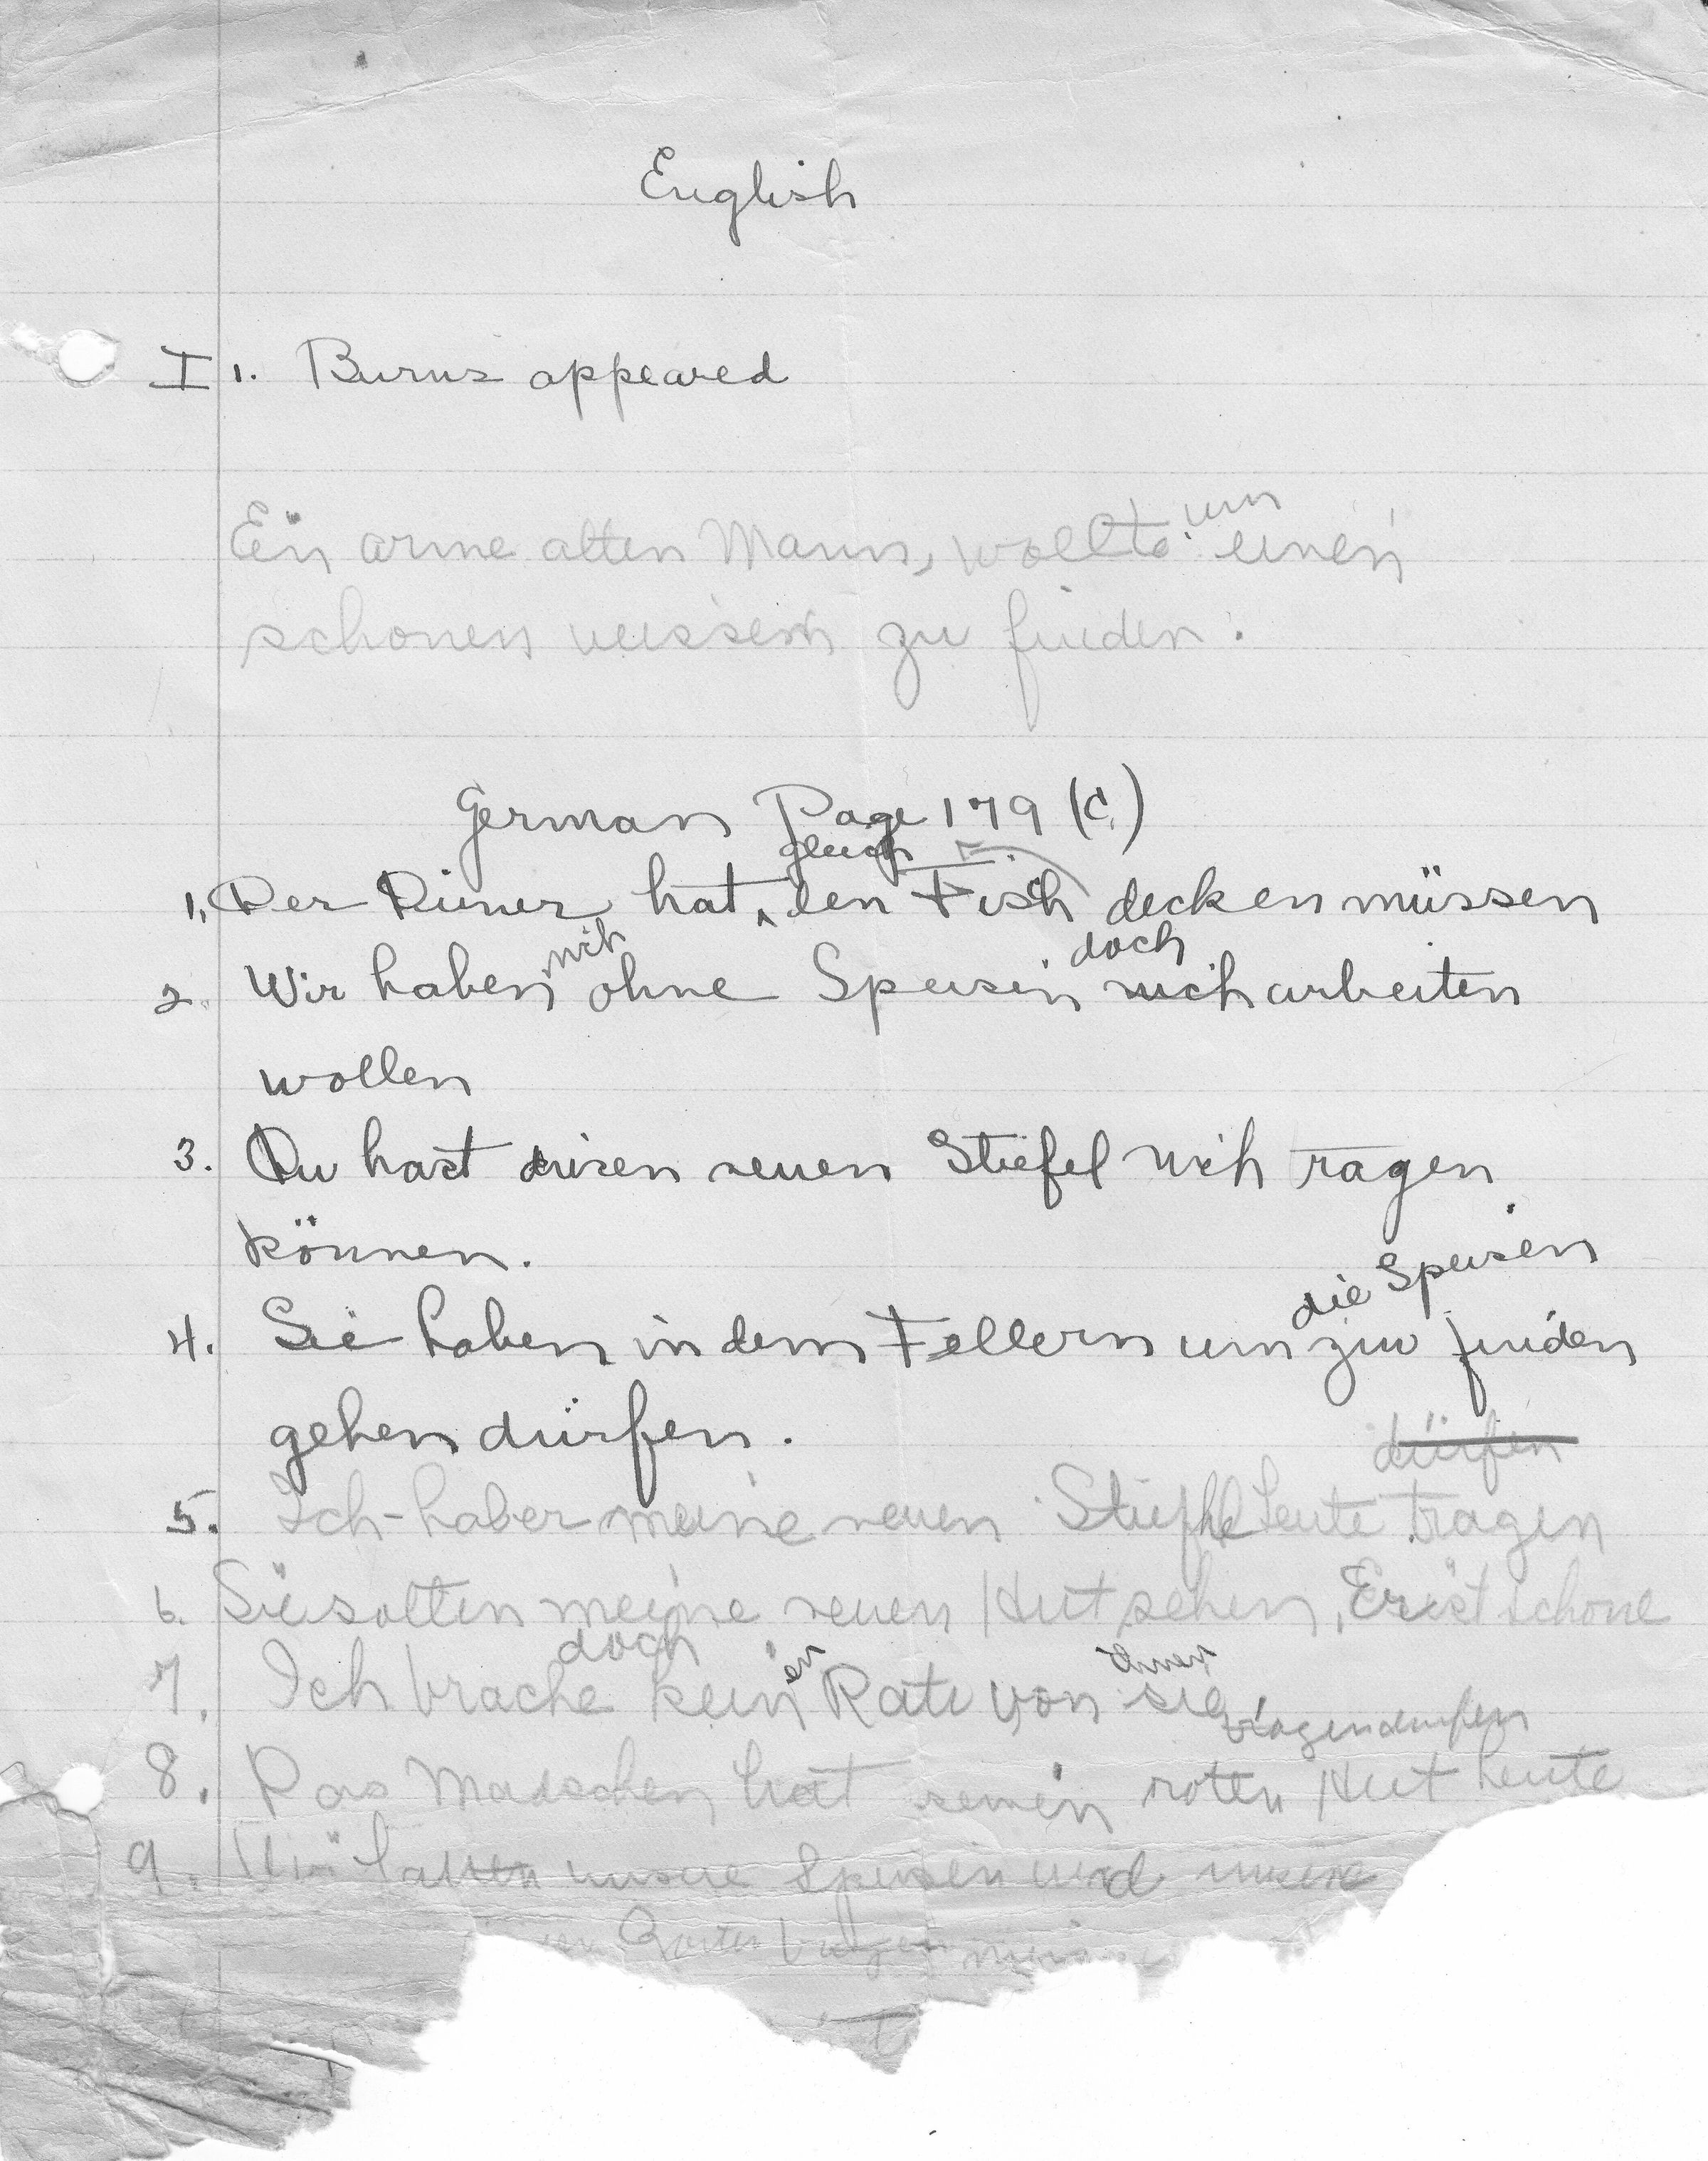 English
I 1. Burns appeared
Ein arme alten Mann, wollte um einen
schonen weissem zu finden.
German Page 179 (C)
gleich
1. Der Diener hat den Tisch decken müssen
mit doch
2. Wir haben ohne Speisen nich arbeiten
wollen
3. Du hast diesen neuen Stiefel nich tragen
können.
die Speisen
4. Sie haben in dem Tellern um zu finden
gehen dürfen.
dürfen
5. Ich haben meine neuen heute tragen
6. Sie solten meine neuen Hut sehen, Er ist schone
doch en ihnen
7. Ich brache kein Rate von sie
tragen durfen
8. Das Madschen hat seinen roten Hut heute
9. Wir unsere Speisen und unsere